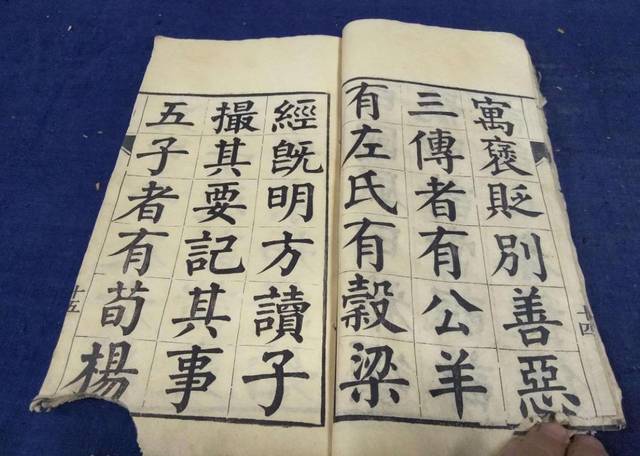 寓褒貶別善惡
三傳者有公羊
有左氏有穀梁
十四
經既明方讀子
撮其要記其事
五子者有荀楊
十五